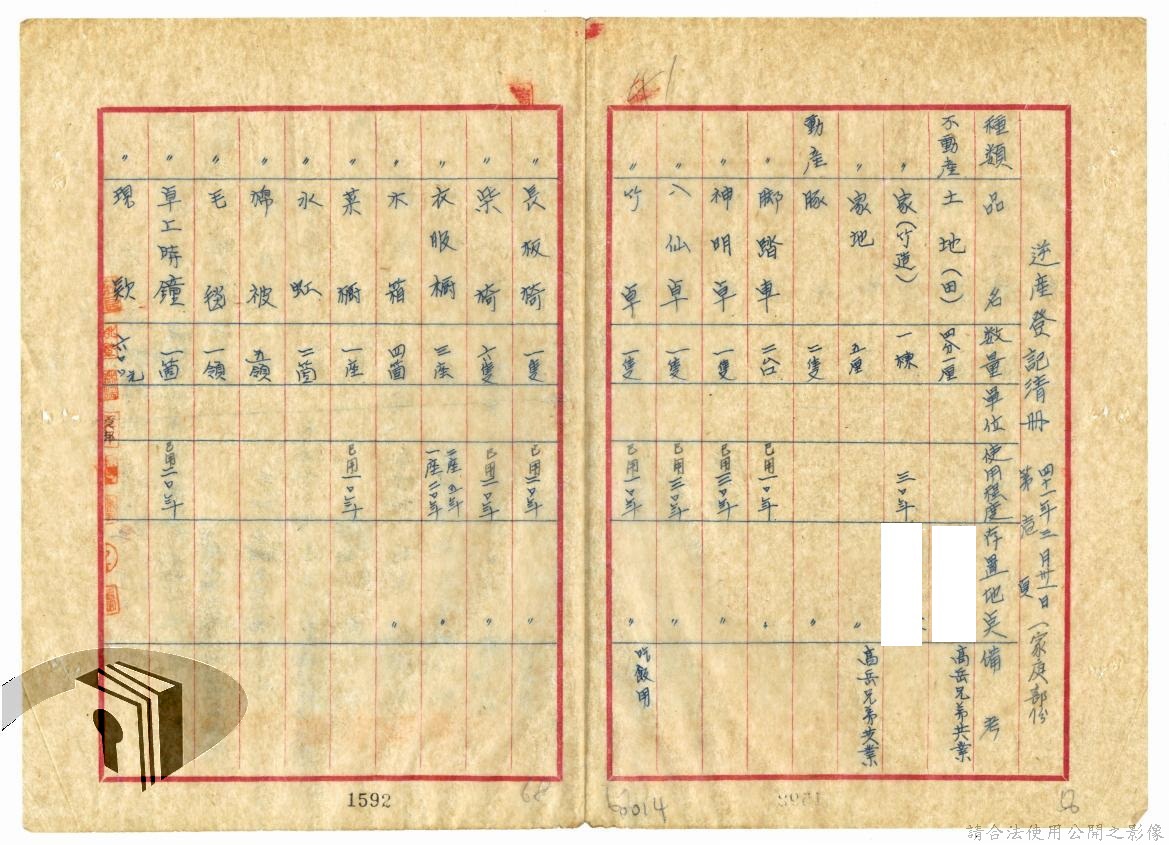 逆產登記清册 四十一年三月卅一日 (家庭部份
第壱頁
種類 品名 数量 單位 使用程度 存置地点 備考
不動產 土地(田) 四分一厘 高岳兄弟共業
〃 家(竹造) 一棟 三〇年
〃 家地 五厘 〃 高岳兄弟共業
動產 豚 二隻 〃
〃 脚踏車 二台 已用一〇年 〃
〃 神明卓 一隻 已用三〇年 〃
〃 八仙卓 一隻 已用三〇年 〃
〃 竹卓 一隻 已用一〇年 〃 吃飯用
〃 長板椅 一隻 已用二〇年 〃
〃 柴椅 六隻 已用一〇年 〃
〃 衣服櫥 三座 二座五年 一座二〇年
〃 木箱 四箇 〃
〃 菜櫥 一座 已用一〇年
〃 水缸 二箇
〃 棉被 五領
〃 毛毯 一領
〃 卓上時鐘 一箇 已用二〇年
〃 現款 六〇〇元
1592
0014
68
請合法使用公開之影像